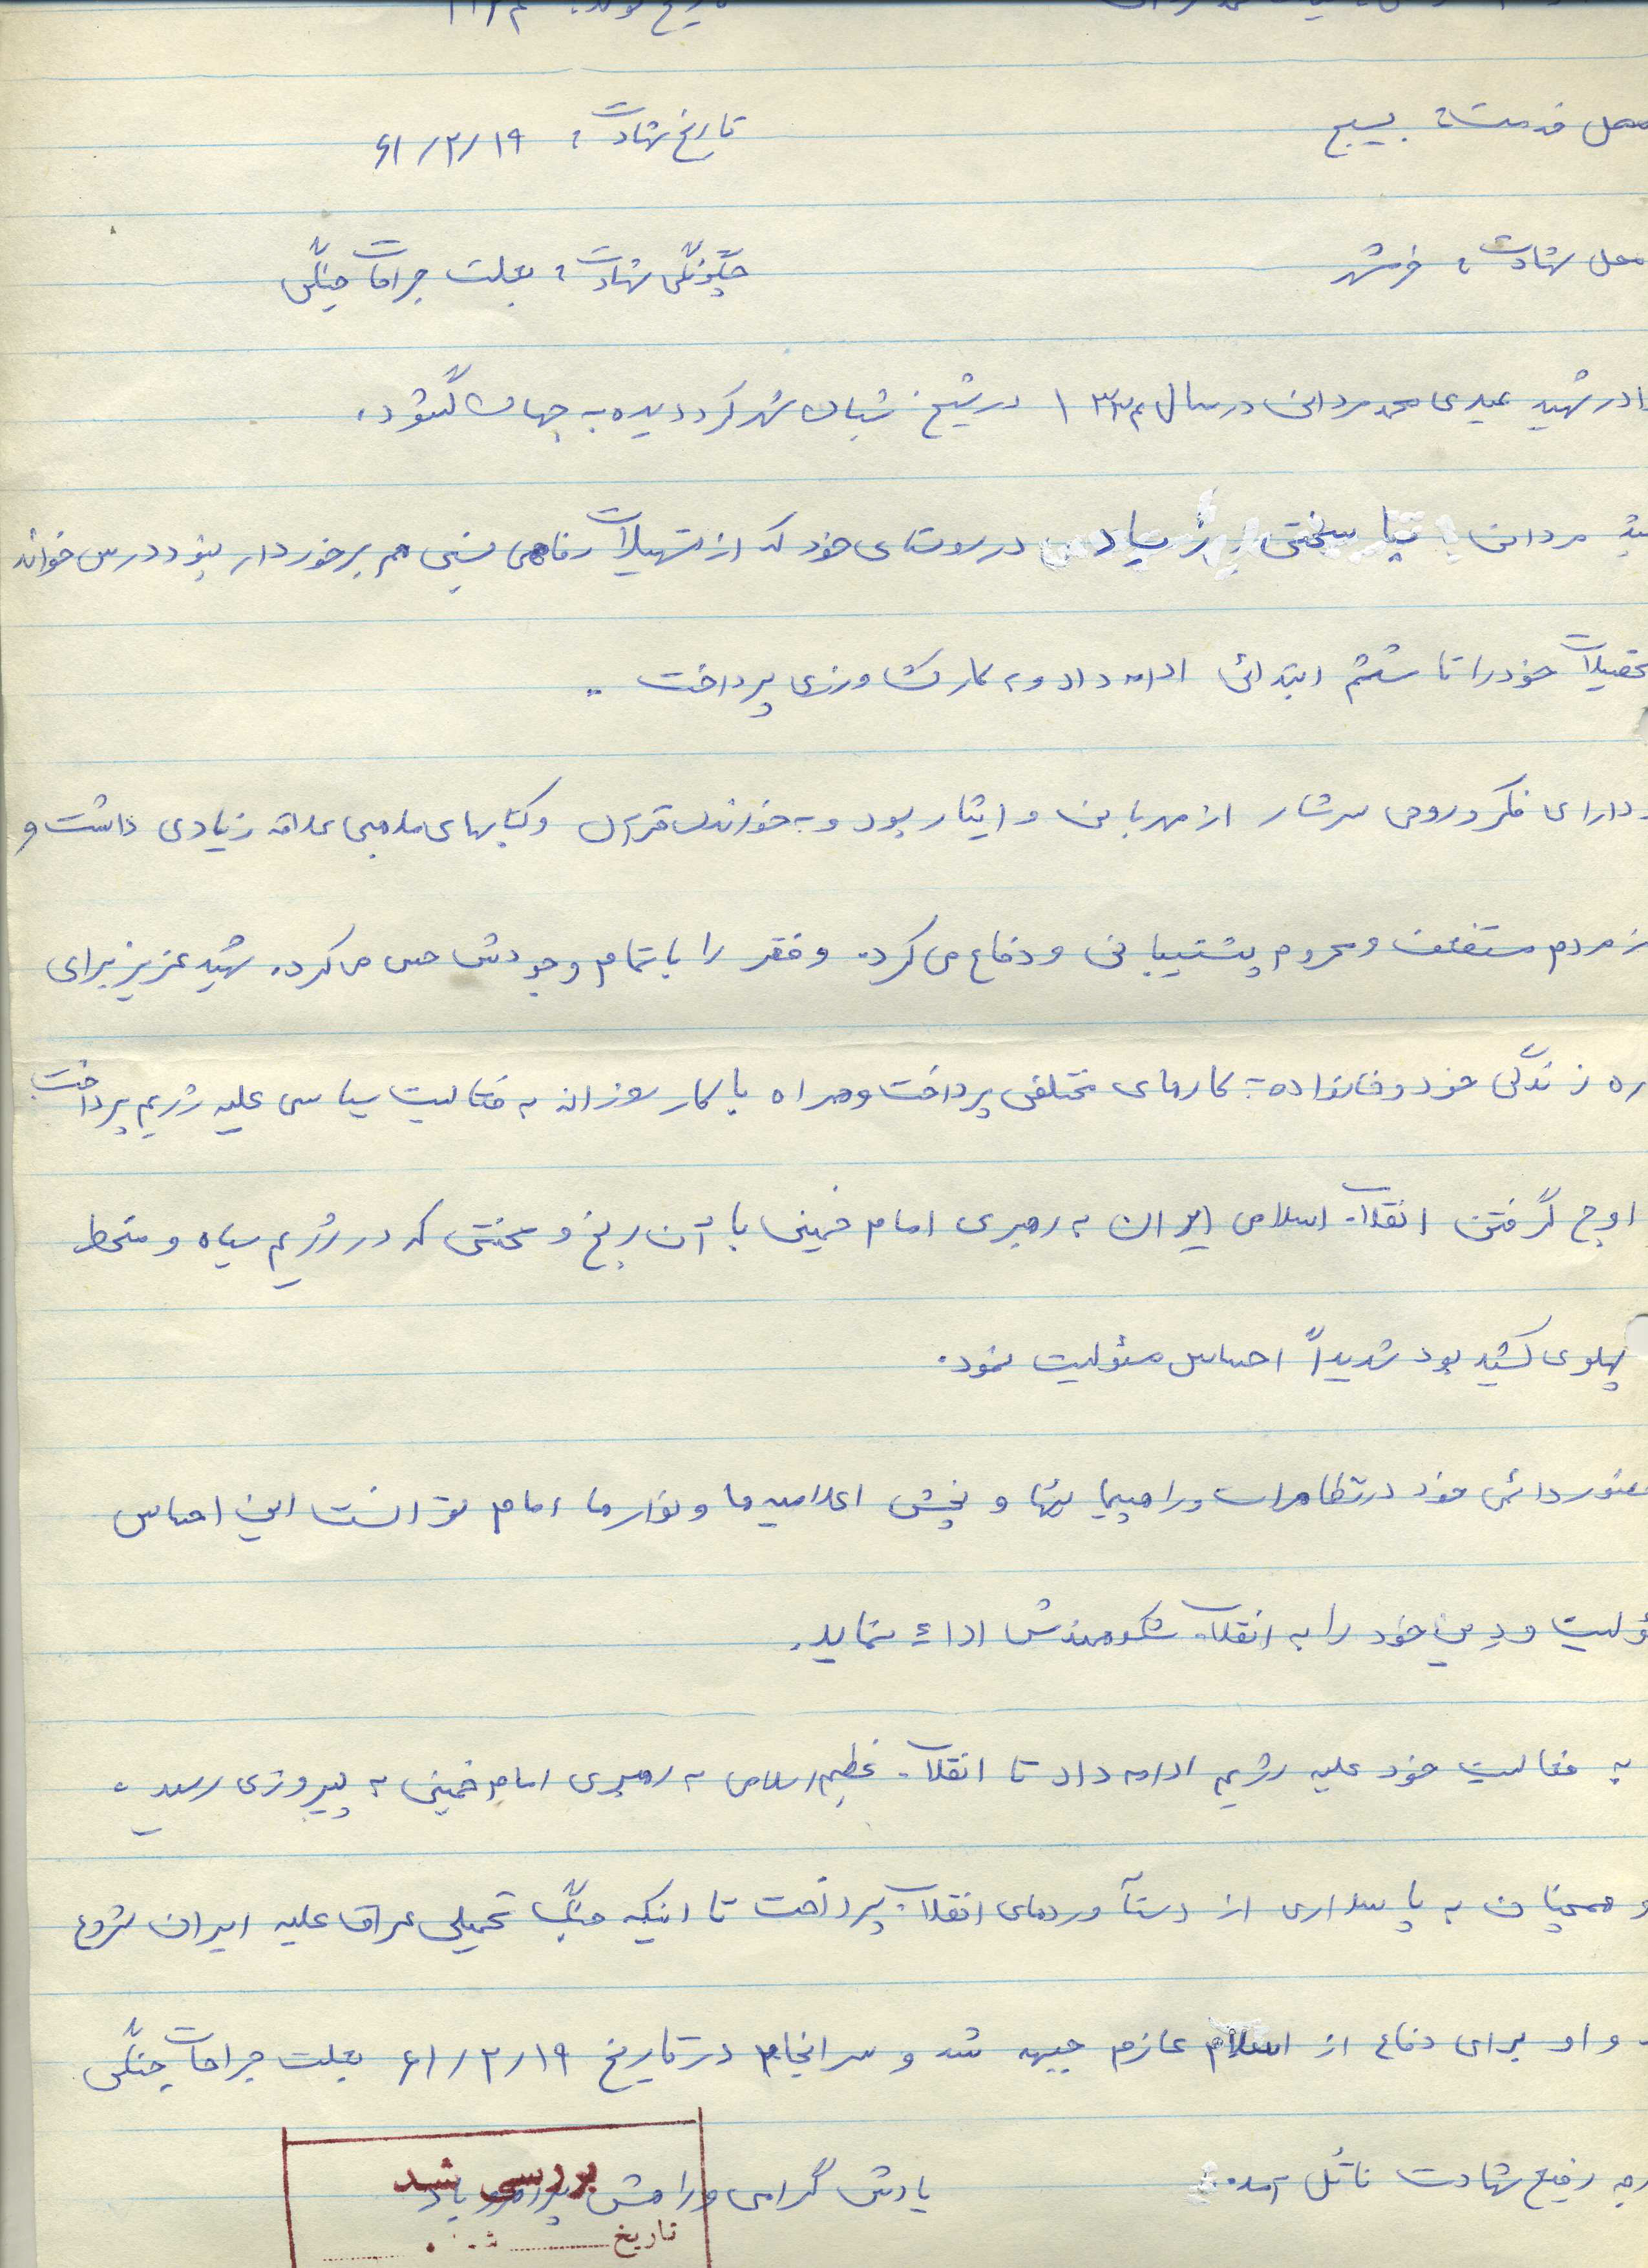 تاریخ تولد:
محل خدمت: بسیج تاریخ شهادت: ۶۱/۲/۱۹
محل شهادت: خرمشهر چگونگی شهادت: بعلت جراحات جنگی
برادر شهید عیدی محمد مردانی در سال ۱۳۳۴ در شیخ شبان شهرکرد دیده به جهان گشود.
شهید مردانی با سختی زیاد در روستای خود که از تسهیلات رفاهی نسبی هم برخوردار نبود درس خواند
تحصیلات خود را تا ششم ابتدائی ادامه داد و به کار کشاورزی پرداخت ..
دارای فکر و روحی سرشار از مهربانی و ایثار بود و به خواندن قرآن و کتابهای مذهبی علاقه زیادی داشت و
از مردم مستضعف و محروم پشتیبانی و دفاع می کرد. و فقر را با تمام وجودش حس می کرد. شهید عزیز برای
اداره زندگی خود و خانواده به کارهای مختلفی پرداخت و همراه با کار روزانه به فعالیت سیاسی علیه رژیم پرداخت
اوج گرفتن انقلاب اسلامی ایران به رهبری امام خمینی با آن رنج و محنتی که در رژیم سیاه و منحط
پهلوی کشیده بود شدیداً احساس مسئولیت نمود.
حضور دائمی خود در تظاهرات و راهپیمائیها و پخش اعلامیه ها و نوارها امام توانست این احساس
مسئولیت و دین خود را به انقلاب شکوهمندش اداء نماید.
به فعالیت خود علیه رژیم ادامه داد تا انقلاب عظیم اسلامی به رهبری امام خمینی به پیروزی رسید.
و همچنان به پاسداری از دستآوردهای انقلاب پرداخت تا اینکه جنگ تحمیلی عراق علیه ایران شروع
و او برای دفاع از اسلام عازم جبهه شد و سرانجام در تاریخ ۶۱/۲/۱۹ بعلت جراحات جنگی
درجه رفیع شهادت نائل آمد. یادش گرامی و راهش پر رهرو باد
بررسی شد
تاریخ